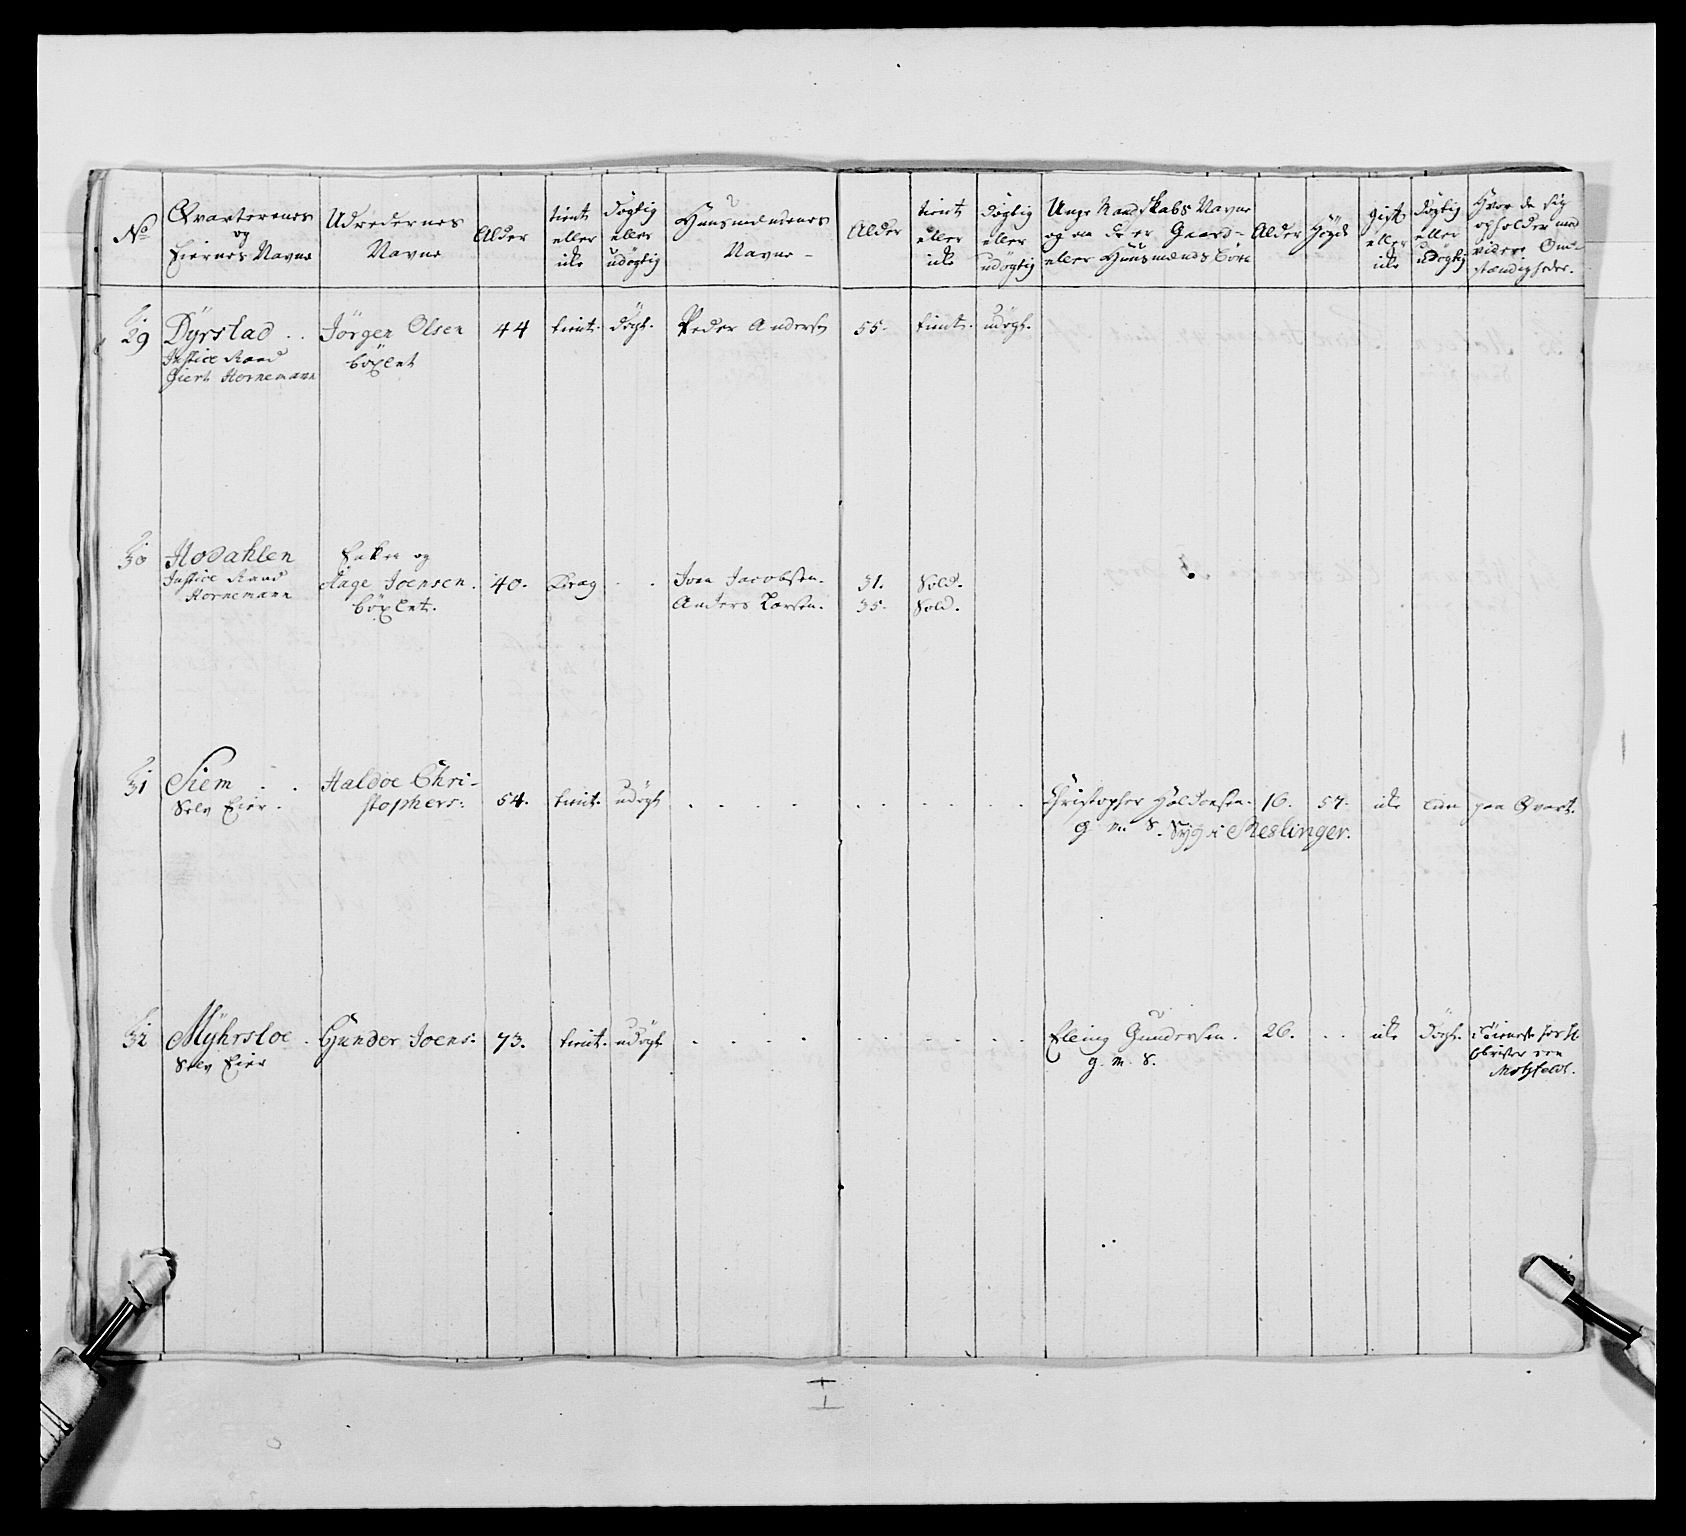 No
Qvarterenes
og
Eiernes Navne
Udredernes
Navne
Alder
tient
eller
icke
dögtig
eller
udögtig
Huusmændenes
Navne -
Alder
tient
eller
icke
dögtig
eller
udögtig
Unge Mandskabs Navne
og om de er Gaard-
eller Huusmænds Börn
Alder
Höyde
gift
eller
icke
dögtig
eller
udögtig
Hvor de sig
opholder med
videre Om-
stændigheder.
29
Dÿrstad . .
Justice Raad
Giert Hornemann
Jörgen Olsen
böxlet
44
tient.
dögt.
Peder Anders
55.
tient.
udögt.
30
Hodahlen
Justice Raad
Hornemann
Enken og
Aage Joensen.
böxlet.
40.
Drag
. .
Joen Jacobsen.
Anders Larsen.
31.
35.
Sold.
Sold.
31
Siem . .
Selv Eier.
Haldoe Chri-
stophers:
54.
tient.
udögt
. . . . . . . . . .
Christopher Haldorsen.
g. m. S. Syg i Meslinger.
16.
57.
icke
paa Qvart.
32
Mÿhrsloe.
Selv Eier
Gunder Joens:
73.
tient.
udögt
. . . . . . . . . .
Elling Gundersen.
g. m. S.
26.
. .
icke
dögt.
i Tieneste hos H.
Obrister von
Motzfeldt.